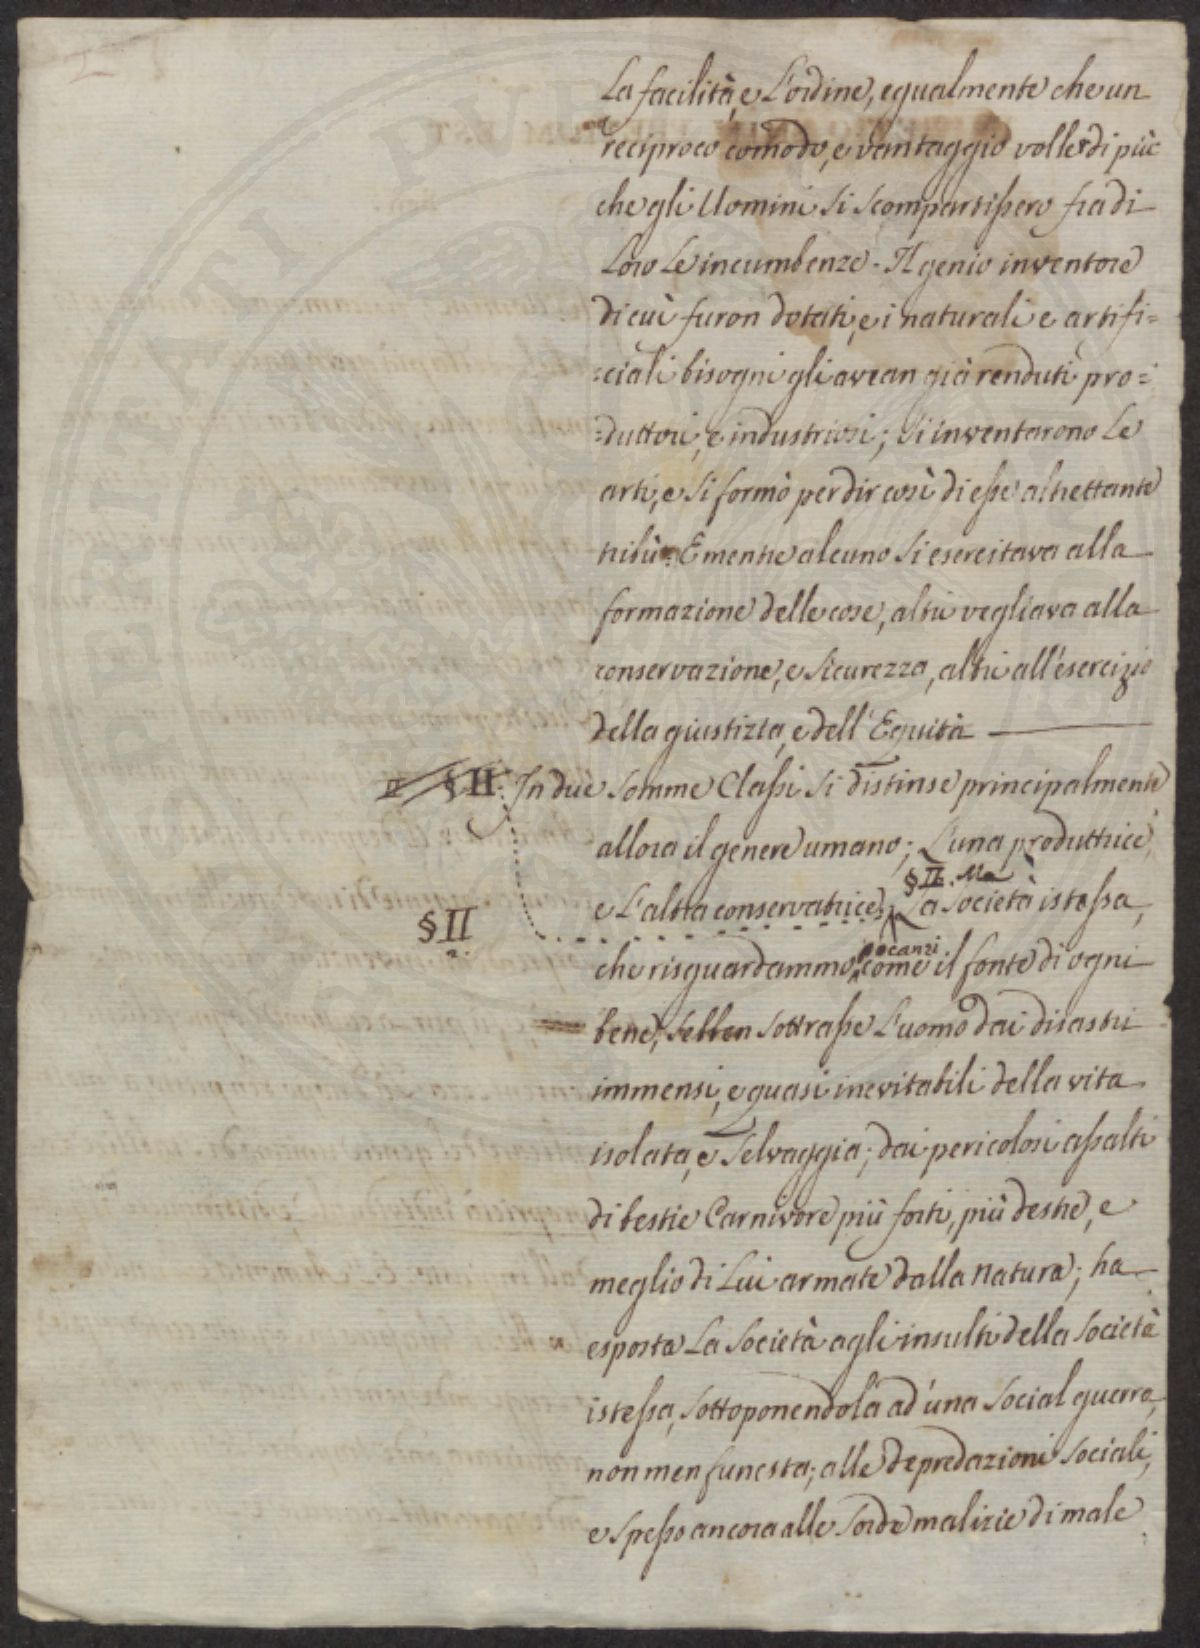 La facilità, e L'ordine, egualmente che un
reciproco comodo, e vantaggio volle di più
che gli Uomini si scompartissero fra di
Loro Le incumbenze. Il genio inventore
di cui furon dotati, e i naturali e artifi=
=ciali bisogni gli avean già renduti pro=
=duttori, e industriosi; si inventarono Le
arti, e si formò per dir così di esse altrettante
tribù. E mentre alcuno si esercitava alla
formazione delle cose, altri vegliava alla
conservazione, e sicurezza, altri all'esercizio
della giustizia, e dell'Equità
§ II. In due somme Classi si distinse principalmente
allora il genere umano; L'una produttrice,
§ II. Ma
e L'altra conservatrice. La Società istessa,
§ II
pocanzi
che risguardammo come il fonte di ogni
bene, sebben sottrasse L'uomo dai disastri
immensi, e quasi inevitabili della vita
isolata, e selvaggia; dai pericolosi assalti
di bestie Carnivore più forti, più destre, e
meglio di Lui armate dalla natura; ha
esposta La Società agli insulti della Società
istessa, sottoponendola ad una social guerra,
non men funesta; alle depredazioni sociali,
e spesso ancora alle sorde malizie di male